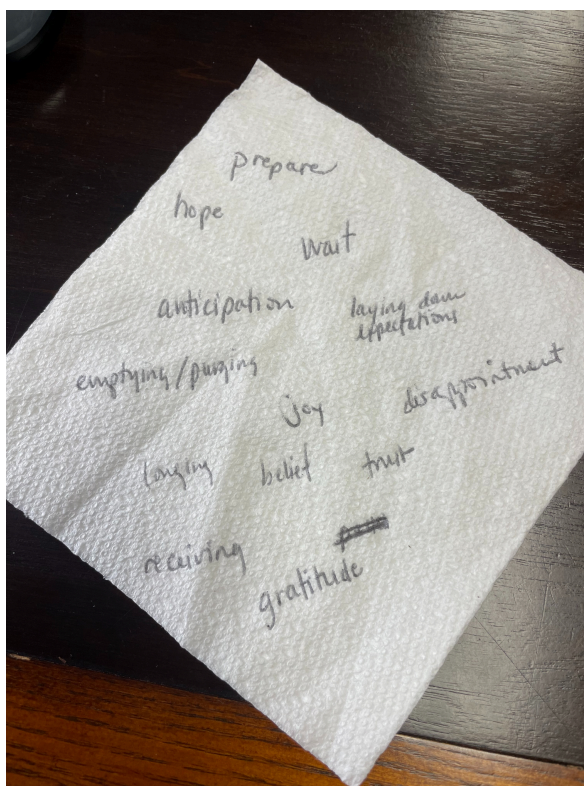 prepare
hope
wait
anticipation
laying down
expectations
emptying/purging
joy
disappointment
longing
belief
trust
receiving
gratitude